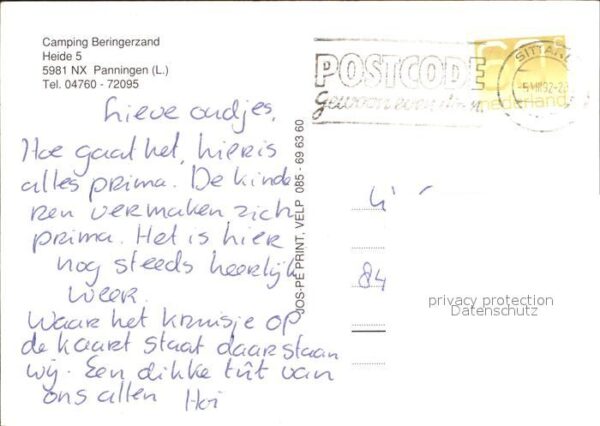 Camping Beringerzand
Heide 5
5981 NX Panningen (L.)
Tel. 04760 - 72095
POSTCODE
Gewoon even doen.
SITTARD
60c
nederland
Lieve oudjes,
Hoe gaat het, hier is
alles prima. De kinde
ren vermaken zich
prima. Het is hier
nog steeds heerlijk
weer.
Waar het kruisje op
de kaart staat daar staan
wij. Een dikke tút van
ons allen Hoi
JOS-PÉ PRINT, VELP 085 - 69 63 60
84
privacy protection
Datenschutz